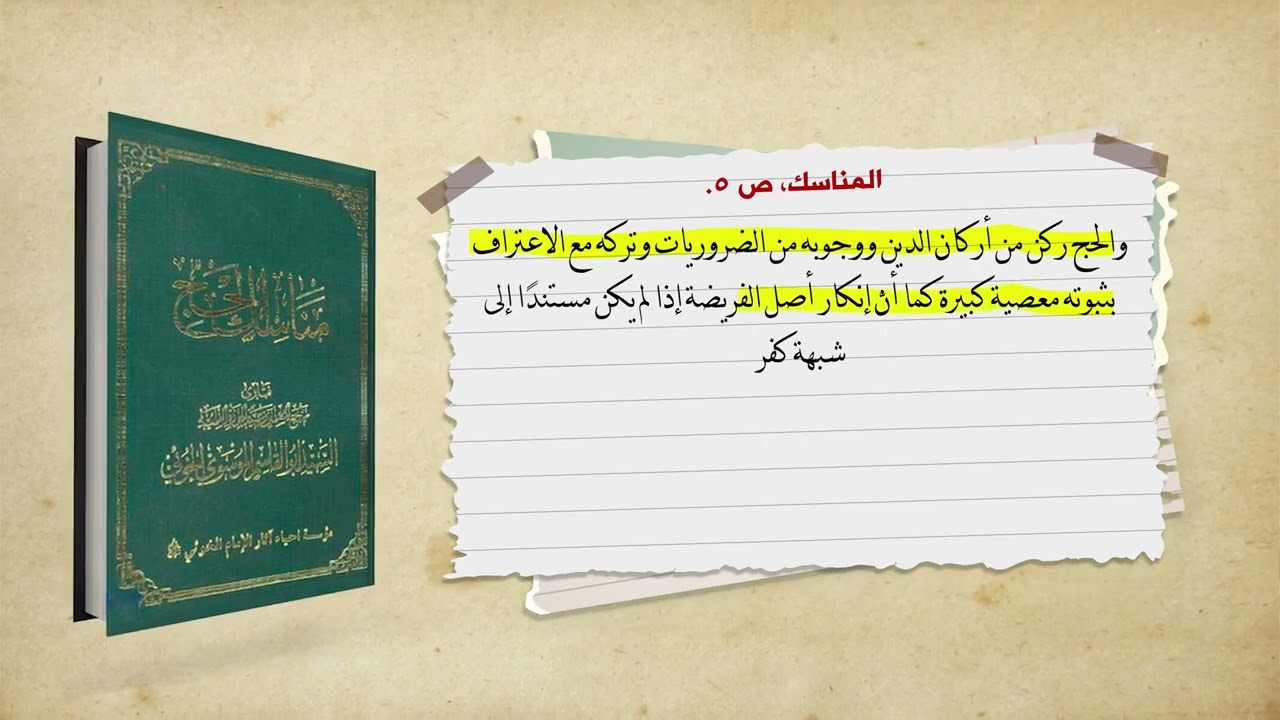 المناسك، ص ٥.
والحج ركن من أركان الدين ووجوبه من الضروريات وتركه مع الاعتراف
بثبوته معصية كبيرة كما أن إنكار أصل الفريضة إذا لم يكن مستندًا إلى
شبهة كفر
مناسك الحج
فتاوى
السيد أبو القاسم الموسوي الخوئي
مؤسسة احياء آثار الإمام الخوئي